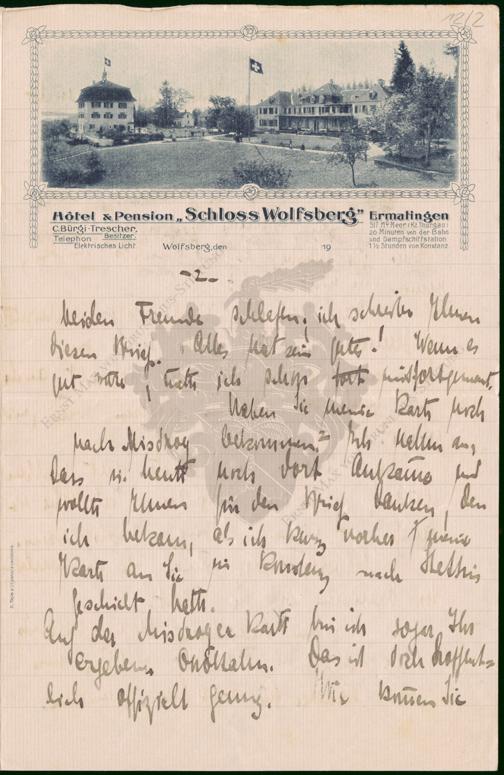 12/2
Hôtel & Pension „Schloss Wolfsberg" Ermatingen
C. Bürgi-Trescher,
Besitzer.
Telephon
Elektrisches Licht.
517 M. ü. Meer (Kt. Thurgau)
20 Minuten von der Bahn
und Dampfschiffstation
1½ Stunden von Konstanz
Wolfsberg, den 19
- 2. -
beiden Freunde schlafen, ich schreibe Ihnen
diesen Brief. Alles hat sein gutes! Wenn es
gut wäre, hätte ich schon fort müssen
Haben Sie meine Karte noch
nach Misdroy bekommen? Ich nehme an,
dass sie heute noch dort ankäme und
wollte Ihnen für den Brief danken, den
ich bekam, als ich kurz vorher meine
Karte an Sie in Konstanz nach Stettin
geschickt hatte.
Auf der Misdroyer Karte bin ich sogar Ihr
ergebener Das ist doch hoffent-
lich offiziell genug. Wie können Sie